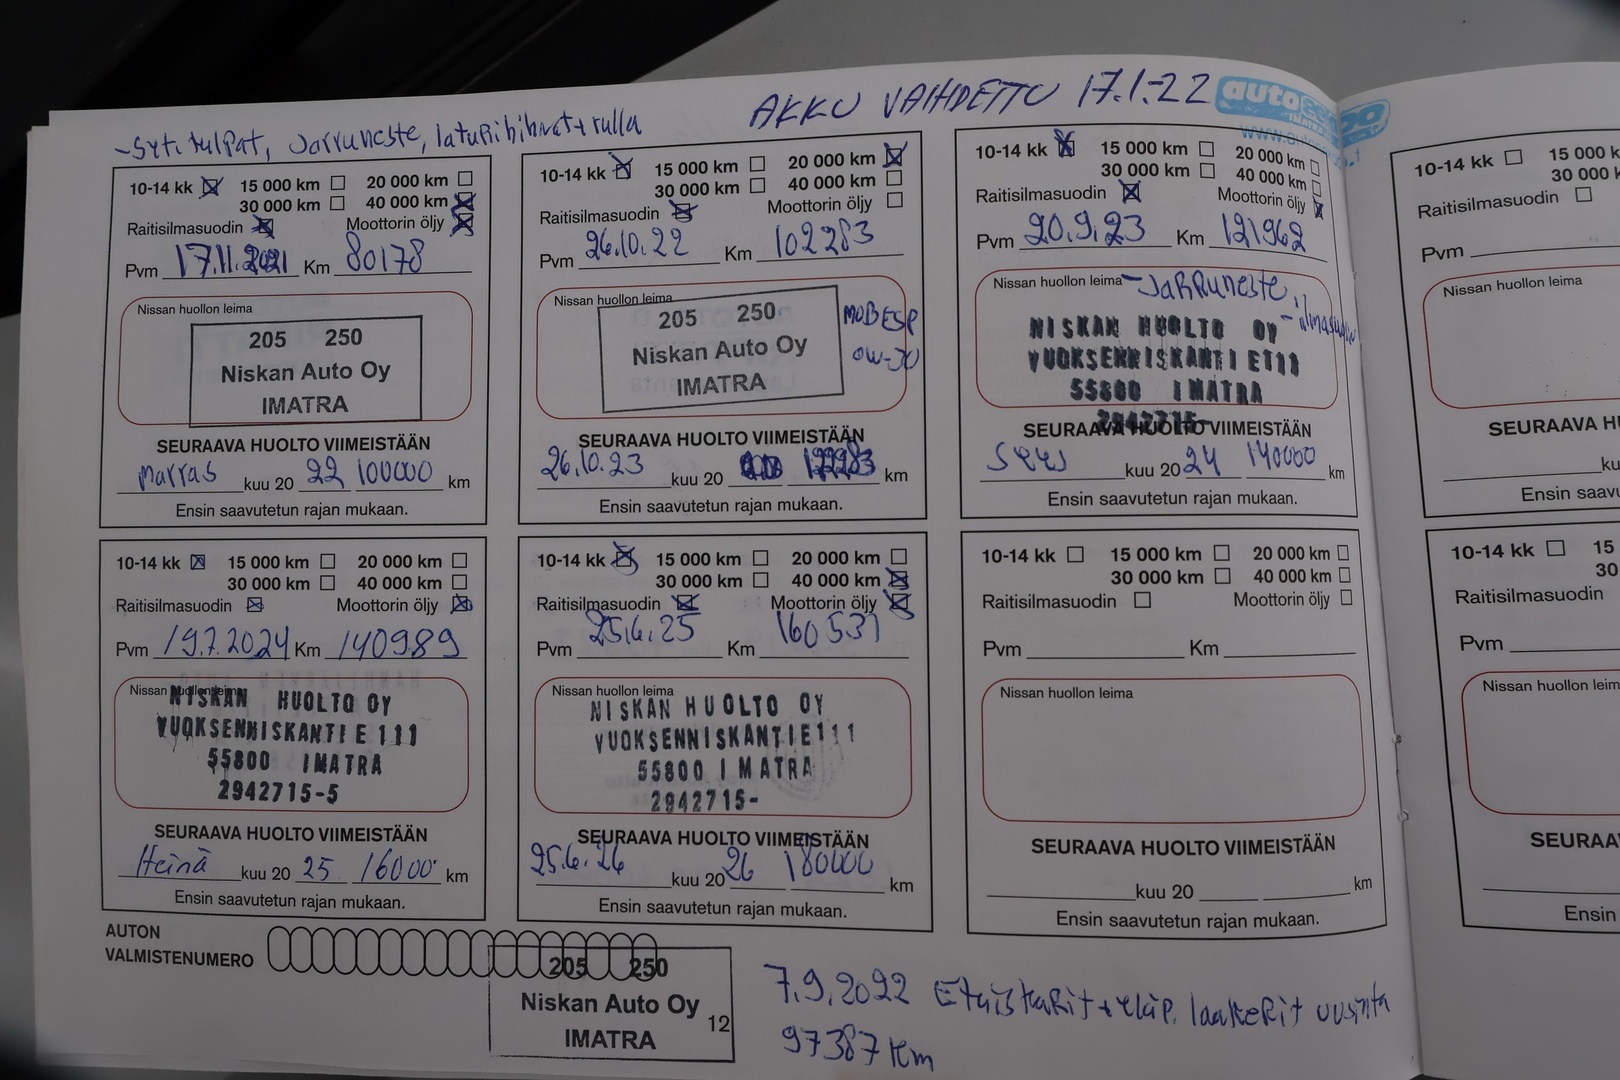 -Syt.tulpat, Jarruneste, laturihihnat+rulla
AKKU VAIHDETTU 17.1.-22
auto
10-14 kk 15 000 km 20 000 km
30 000 km 40 000 km
Raitisilmasuodin Moottorin öljy
Pvm 17.11.2021 Km 80178
Nissan huollon leima
205 250
Niskan Auto Oy
IMATRA
SEURAAVA HUOLTO VIIMEISTÄÄN
Marras kuu 20 22 100000 km
Ensin saavutetun rajan mukaan.
10-14 kk 15 000 km 20 000 km
30 000 km 40 000 km
Raitisilmasuodin Moottorin öljy
Pvm 26.10.22 Km 102283
Nissan huollon leima
205 250
Niskan Auto Oy
IMATRA
MOB ESP
0W-30
SEURAAVA HUOLTO VIIMEISTÄÄN
26.10.23 kuu 20 122283 km
Ensin saavutetun rajan mukaan.
10-14 kk 15 000 km 20 000 km
30 000 km 40 000 km
Raitisilmasuodin Moottorin öljy
Pvm 20.9.23 Km 121962
Nissan huollon leima -Jarruneste,
NISKAN HUOLTO OY
VUOKSENNISKANTIE111
55800 IMATRA
2942715-
SEURAAVA HUOLTO VIIMEISTÄÄN
Syys kuu 20 24 140000 km
Ensin saavutetun rajan mukaan.
10-14 kk 15 000 k
30 000 k
Raitisilmasuodin
Pvm
Nissan huollon leima
SEURAAVA H
ku
Ensin saavu
10-14 kk 15 000 km 20 000 km
30 000 km 40 000 km
Raitisilmasuodin Moottorin öljy
Pvm 19.7.2024 Km 140989
Nissan huollon leima
NISKAN HUOLTO OY
VUOKSENNISKANTIE111
55800 IMATRA
2942715-5
SEURAAVA HUOLTO VIIMEISTÄÄN
Heinä kuu 20 25 16000 km
Ensin saavutetun rajan mukaan.
10-14 kk 15 000 km 20 000 km
30 000 km 40 000 km
Raitisilmasuodin Moottorin öljy
Pvm 25.6.25 Km 160531
Nissan huollon leima
NISKAN HUOLTO OY
VUOKSENNISKANTIE111
55800 IMATRA
2942715-
SEURAAVA HUOLTO VIIMEISTÄÄN
25.6.26 kuu 20 26 180000 km
Ensin saavutetun rajan mukaan.
10-14 kk 15 000 km 20 000 km
30 000 km 40 000 km
Raitisilmasuodin Moottorin öljy
Pvm Km
Nissan huollon leima
SEURAAVA HUOLTO VIIMEISTÄÄN
kuu 20 km
Ensin saavutetun rajan mukaan.
10-14 kk 15
30
Raitisilmasuodin
Pvm
Nissan huollon leim
SEURAA
Ensin
AUTON
VALMISTENUMERO
205 250
Niskan Auto Oy
IMATRA
12
7.9.2022 Etuiskarit + yläp. laakerit uusinta
97387 Km